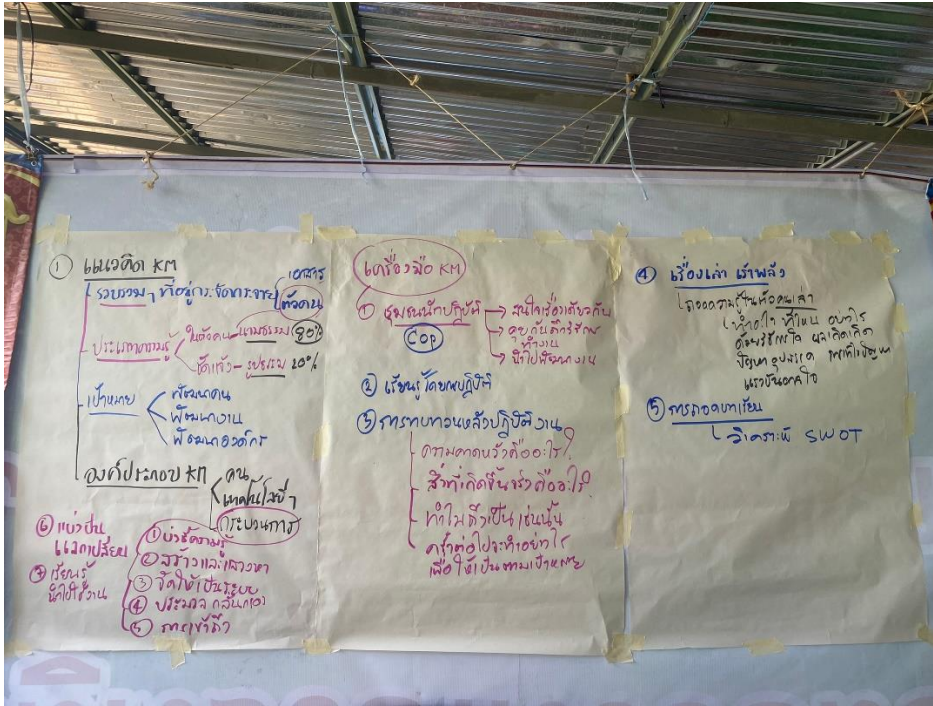 ① แนวคิด KM
เอกสาร
รวบรวมๆ ที่อยู่กระจัดกระจาย ตัวคน
ประเภทความรู้
ในตัวคน - นามธรรม 80%
ชัดแจ้ง - รูปธรรม 20%
เป้าหมาย
พัฒนาคน
พัฒนางาน
พัฒนาองค์กร
องค์ประกอบ KM
คน
เทคโนโลยีฯ
กระบวนการ
① บ่งชี้ความรู้
② สร้างและแสวงหา
③ จัดให้เป็นระบบ
④ ประมวล กลั่นกรอง
⑤ การเข้าถึง
⑥ แบ่งปัน
แลกเปลี่ยน
⑦ เรียนรู้
นำไปใช้งาน
เครื่องมือ KM
① ชุมชนนักปฏิบัติ
COP
สนใจเรื่องเดียวกัน
คุยกันถึงวิธีการ
ทำงาน
นำไปพัฒนางาน
② เรียนรู้โดยการปฏิบัติ
③ การทบทวนหลังปฏิบัติงาน
ความคาดหวังคืออะไร?
สิ่งที่เกิดขึ้นจริงคืออะไร?
ทำไมถึงเป็นเช่นนั้น
ครั้งต่อไปจะทำอย่างไร
เพื่อให้เป็นตามเป้าหมาย
④ เรื่องเล่า เร้าพลัง
ถอดความรู้ในตัวคนเล่า
ทำอะไร ที่ไหน อย่างไร
ด้วยวิธีการใด ผลเกิด
ปัญหาอุปสรรค การแก้ไขปัญหา
แรงบันดาลใจ
⑤ การถอดบทเรียน
วิเคราะห์ SWOT